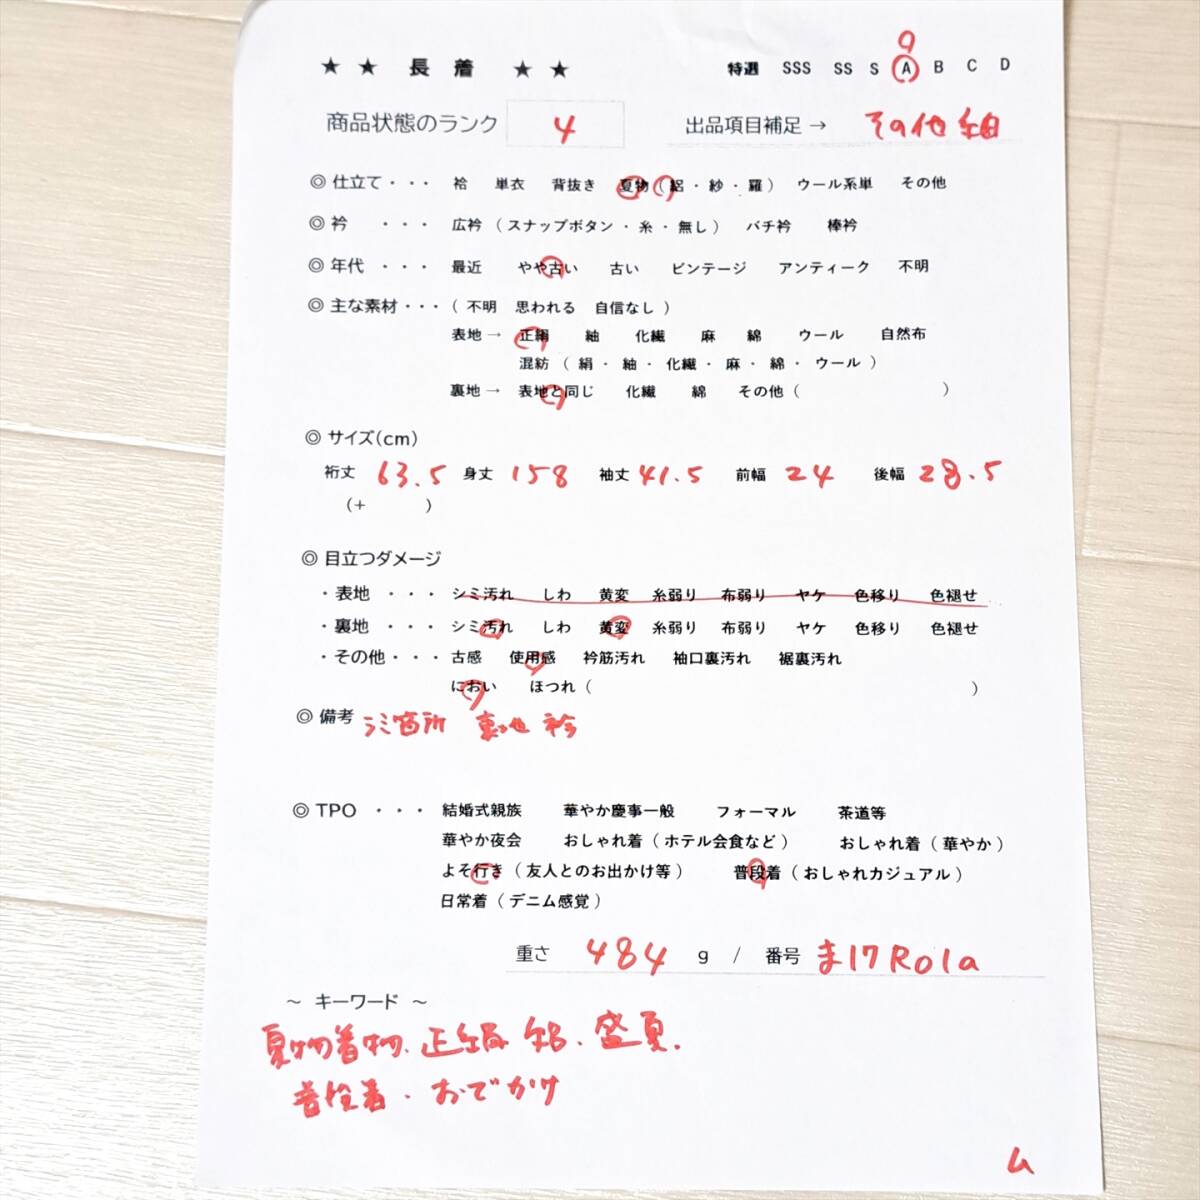 ★ ★ 長 着 ★ ★ 特選 SSS SS S A B C D
9
商品状態のランク 4 出品項目補足 → その他 紬
◎ 仕立て ・・・ 袷 単衣 背抜き 夏物 ( 絽 ・ 紗 ・ 羅 ) ウール系単 その他
◎ 衿 ・・・ 広衿 ( スナップボタン ・ 糸 ・ 無し ) バチ衿 棒衿
◎ 年代 ・・・ 最近 やや古い 古い ビンテージ アンティーク 不明
◎ 主な素材 ・・・ ( 不明 思われる 自信なし )
表地 → 正絹 紬 化繊 麻 綿 ウール 自然布
混紡 ( 絹 ・ 紬 ・ 化繊 ・ 麻 ・ 綿 ・ ウール )
裏地 → 表地と同じ 化繊 綿 その他 ( )
◎ サイズ(cm)
裄丈 63.5 身丈 158 袖丈 41.5 前幅 24 後幅 28.5
(+ )
◎ 目立つダメージ
・ 表地 ・・・ シミ汚れ しわ 黄変 糸弱り 布弱り ヤケ 色移り 色褪せ
・ 裏地 ・・・ シミ汚れ しわ 黄変 糸弱り 布弱り ヤケ 色移り 色褪せ
・ その他 ・・・ 古感 使用感 衿筋汚れ 袖口裏汚れ 裾裏汚れ
におい ほつれ ( )
◎ 備考 シミ箇所 裏地 衿
◎ TPO ・・・ 結婚式親族 華やか慶事一般 フォーマル 茶道等
華やか夜会 おしゃれ着 ( ホテル会食など ) おしゃれ着 ( 華やか )
よそ行き ( 友人とのお出かけ等 ) 普段着 ( おしゃれカジュアル )
日常着 ( デニム感覚 )
重さ 484 g / 番号 ま17R01a
～ キーワード ～
夏物着物、正絹 絽、盛夏、
普段着 ・ おでかけ
ム